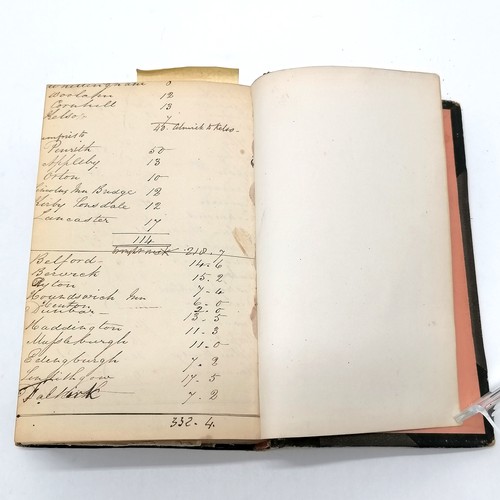 Whittingham 8
Woolafin 12
Cornhill 13
Kelso 7
43. Alnwick to Kelso -
Dumfries to
Penrith 50
Appleby 13
Orton 10
Inn Bridge 12
Kirby Lonsdale 12
Lancaster 17
114
218. 7
Belford 14. 6
Berwick 15. 2
Ayton 7. 4
Houndswich Inn 6. 0
Renton 2. 0
Dunbar 13. 5
Haddington 11. 3
Musleburgh 11. 0
Edingburgh 7. 2
Linlithgow 17. 5
Falkirk 7. 2
332. 4.